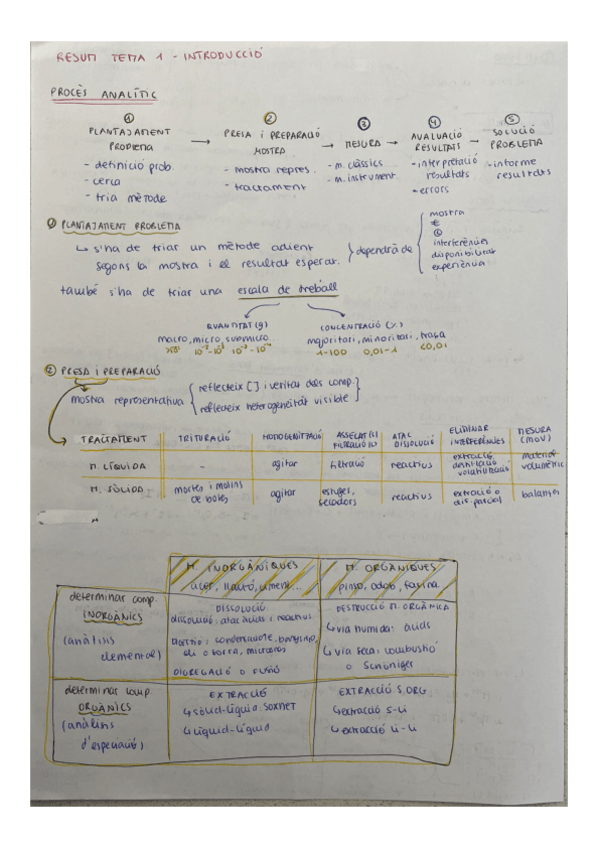 RESUM TEMA 1 - INTRODUCCIÓ
PROCÈS ANALÍTIC
① PLANTAJAMENT PROBLEMA → ② PRESA i PREPARACIÓ MOSTRA → ③ MESURA → ④ AVALUACIÓ RESULTATS → ⑤ SOLUCIÓ PROBLEMA
- definició prob.
- cerca
- tria mètode
- mostra repres.
- tractament
- m. clàssics
- m. instrument.
- interpretació resultats
- errors
- informe resultats
① PLANTAJAMENT PROBLEMA
↳ s'ha de triar un mètode adient
segons la mostra i el resultat esperat.
dependrà de
mostra
€
interferències
disponibilitat
experiència
també s'ha de triar una escala de treball
QUANTITAT (g)
macro, micro, submicro...
CONCENTRACIÓ (%)
majoritari, minoritari, traça
1-100 0,01-1 <0,01
② PRESA i PREPARACIÓ
mostra representativa
reflecteix [ ] i veritat dels comp.
reflecteix heterogeneïtat visible
TRACTAMENT TRITURACIÓ HOMOGENITZACIÓ ASSECAT (S) FILTRACIÓ (L) ATAC DISSOLUCIÓ ELIMINAR INTERFERÈNCIES MESURA (MOV)
M. LÍQUIDA - agitar filtració reactius extracció destil·lació volatilització material volumètric
M. SÒLIDA morters i molins de boles agitar estufes, secadors reactius extracció o balances
M. INORGÀNIQUES M. ORGÀNIQUES
acer, llautó, ciment... pinso, adob, farina.
determinar comp.
INORGÀNICS
(anàlisis
elemental)
DISSOLUCIÓ
dissolució: atac àcids i reactius
DIGREGACIÓ O FUSIÓ
DESTRUCCIÓ M. ORGÀNICA
↳ via humida: àcids
↳ via seca: combustió
o Schöniger
determinar comp.
ORGÀNICS
(anàlisis
d'especiació)
EXTRACCIÓ
↳ sòlid-líquid: soxhlet
↳ líquid-líquid
EXTRACCIÓ S. ORG
↳ extracció s-li
↳ extracció li-li